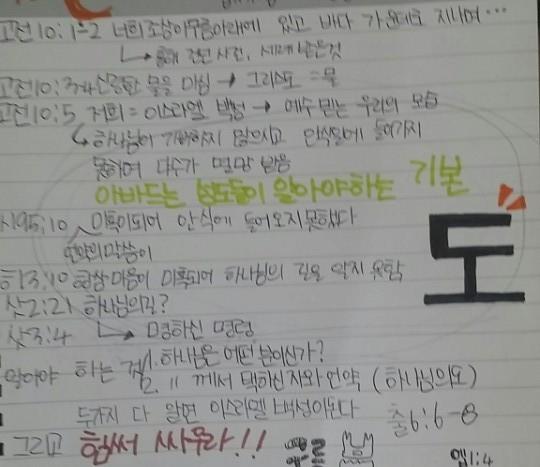 고전10:1-2 너희 조상이 구름아래에 있고 바다 가운데로 지나며...
↳ 홍해 건넌 사건, 세례 받은것
고전10:3-4 신령한 물을 마심 → 그리스도 = 물
고전10:5 저희 = 이스라엘 백성 → 예수 믿는 우리의 모습
↳ 하나님이 기뻐하지 않으시고 안식일에 들어가지
못하여 다수가 멸망 받음
아바드는 성도들이 알아야하는 기본
시95:10 미혹이되어 안식에 들어오지못했다
언약의말씀이
히3:10 항상 마음이 미혹되어 하나님의 길을 알지 못함
도
삿2:21 하나님의길?
삿3:4 ↳ 명하신 명령
알아야 하는 것 1. 하나님은 어떤 분이신가?
2. 〃 께서 택하신자와 언약 (하나님의도)
두가지 다 알면 이스라엘 백성이된다
출6:6-8
그리고 힘써 싸우라!!
엡1:4